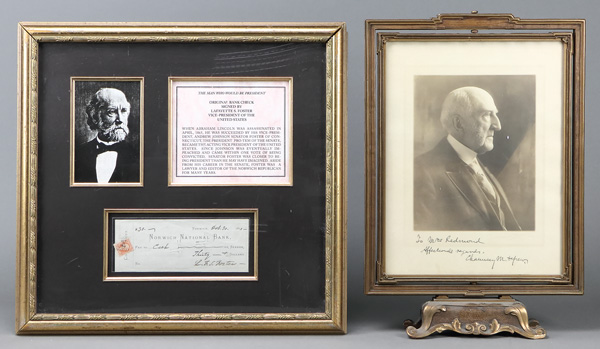 THE MAN WHO WOULD BE PRESIDENT
ORIGINAL BANK CHECK
SIGNED BY
LAFAYETTE S. FOSTER
VICE-PRESIDENT OF THE
UNITED STATES
WHEN ABRAHAM LINCOLN WAS ASSASSINATED IN
APRIL, 1865, HE WAS SUCCEEDED BY HIS VICE-PRESI-
DENT, ANDREW JOHNSON. SENATOR FOSTER OF CON-
NECTICUT, THE PRESIDENT PRO-TEM OF THE SENATE,
BECAME THE ACTING VICE PRESIDENT OF THE UNITED
STATES. SINCE JOHNSON WAS EVENTUALLY IM-
PEACHED AND CAME WITHIN ONE VOTE OF BEING
CONVICTED, SENATOR FOSTER WAS CLOSER TO BE-
ING PRESIDENT THAN HE MAY HAVE DESIRED. ASIDE
FROM HIS CAREER IN THE SENATE, FOSTER WAS A
LAWYER AND EDITOR OF THE NORWICH REPUBLICAN
FOR MANY YEARS.
NORWICH NATIONAL BANK,
Cash
Thirty
L. F. S. Foster
To Mr Redmond
Affectionate regards.
Chauncey M. Depew